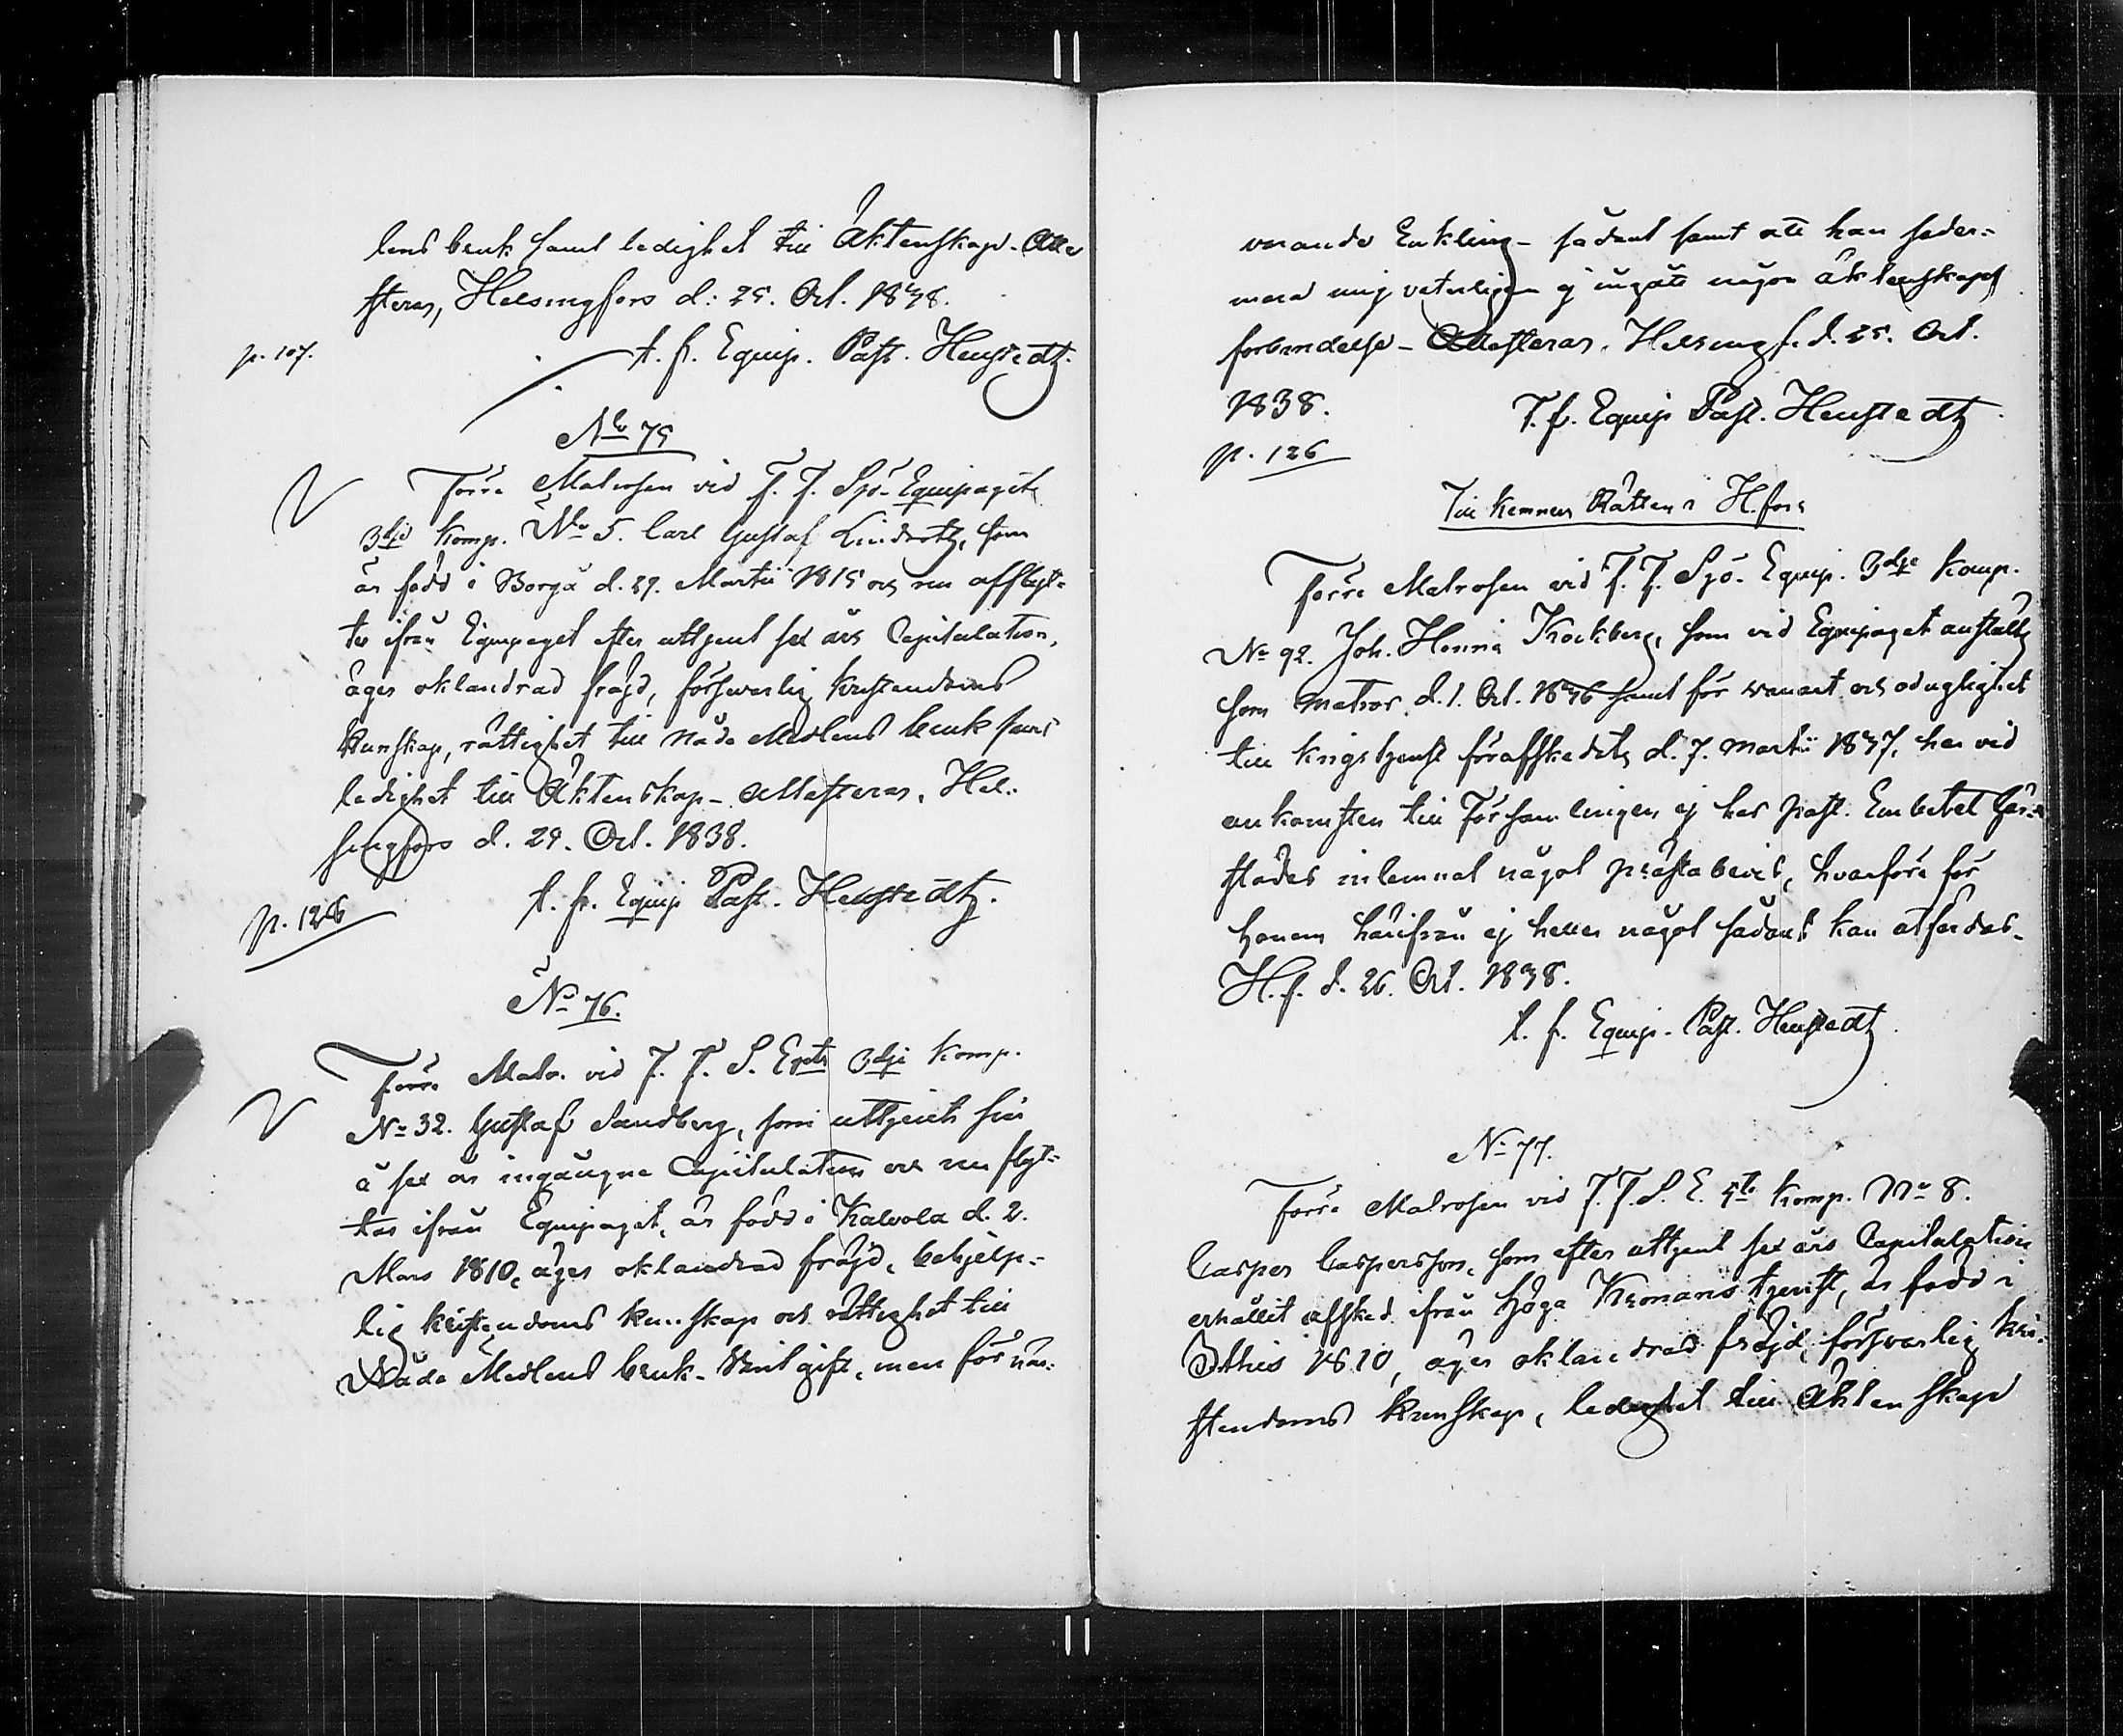 lens bruk samt ledighet till Äktenskap - Atte
steras, Helsingfors d: 25. Oct. 1838.
p. 107.
t. f. Equip. Past. Henstedt.
No 75
Förre Matrosen vid F. F. Sjö-Equipagets
3dje Komp. No 5. Carl Gustaf som
är född i Borgå d. 29. Martii 1815 och nu afflyt=
tar ifrån Equipaget efter uttjent sex års Capitulation,
äger oklandrad fräjd, försvarlig kristendoms
kunskap, rättighet till Nåde Medlens bruk samt
ledighet till Äktenskap - Attesteras, Hel-
singfors d. 29. Oct. 1838.
t. f. Equip Past. Henstedt.
p. 126
No 76.
Förre Matr. vid F. F. S. Eqts 3dje Komp.
No 32. Gustaf Sandberg, som uttjent sin
å sex år ingångne Capitulation och nu flyt=
tar ifrån Equipaget, är född i Kalvola d. 2.
Mars 1810, äger oklandrad fräjd, behjelp=
lig kristendoms kunskap och rättighet till
Nåde Medlens bruk - gift, men för när-
varande Enkling - sådant samt att han seder=
mera mig veterligen ej ingått någon äktenskaps
förbindelse - Attesteras. Helsingf. d. 25. Oct.
1838.
T. f. Equip Past. Henstedt
p. 126
Till Kemners Rätten i H.fors
Förre Matrosen vid F. F. Sjö-Equip. 3dje Komp.
No 92. Joh. Henric Krockberg, som vid Equipaget anställts
som matros d. 1. Oct. 1836 samt för vanart och oduglighet
till krigstjenst förafskedats d. 7. Martii 1837, har vid
ankomsten till Församlingen ej hos Past. Embetet här-
städes inlemnat något prästabevis, hvarföre för
honom härifrån ej heller något sådant kan utfärdas -
H.f. d. 26. Oct. 1838.
t. f. Equip. Past. Henstedt.
No 77.
Förre Matrosen vid F. F. S. E. 4te Komp. No 8.
Casper Caspersson, som efter uttjent sex års Capitulation
erhållit afsked ifrån Höga Kronans tjenst, är född i
Itthis 1810, äger oklandrad fräjd, försvarlig kri-
stendoms kunskap, ledighet till Äktenskap